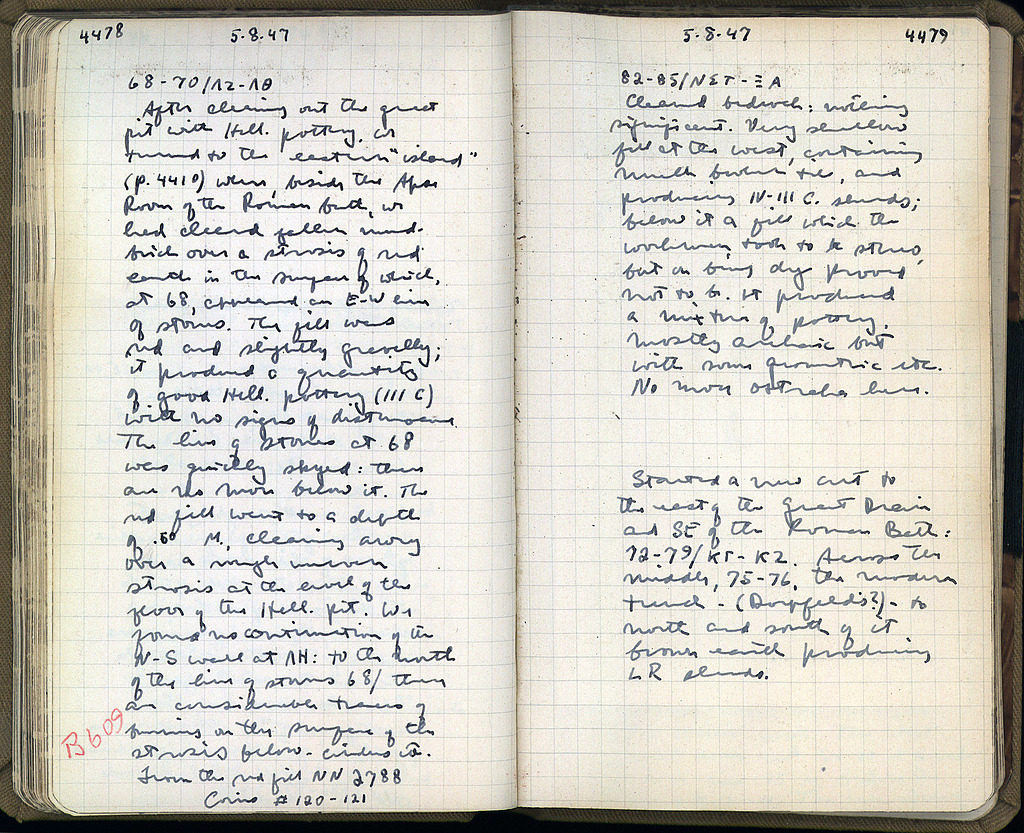 4478
5·8·47
68-70/ΛΖ-ΛΘ
After cleaning out the great
pit with Hell. pottery, we
turned to the eastern "island"
(p. 4410) where, beside the Apse
Room of the Roman bath, we
had cleared fallen mud-
brick over a strosis of red
earth in the surface of which,
at 68, appeared an E-W line
of stones. The fill was
red and slightly gravelly;
it produced a quantity
of good Hell. pottery (III C)
with no signs of disturbance.
The line of stones at 68
was quickly skyed: there
are no more below it. The
red fill went to a depth
of .50 M., cleaning away
over a rough uneven
strosis at the level of the
floor of the Hell. pit. We
found no continuation of the
N-S wall at ΛΗ: to the north
of the line of stones 68/ there
are considerable traces of
burning on the surface of the
strosis below - cinders etc.
From the red fill NN 2788
Coins # 120-121
B609
5·8·47
4479
82-85/ΝΣΤ-ΞΑ
Cleared bedrock: nothing
significant. Very shallow
fill at the west, containing
much broken tile, and
producing IV-III C. sherds;
below it a fill which the
workmen took to be stereo,
but on being dug proved
not to be. It produced
a mixture of pottery,
mostly archaic but
with some geometric etc.
No more ostraka here.
Started a new cut to
the east of the Great Drain
and SE of the Roman Bath:
72-79/ΚΓ-ΚΖ. Across the
middle, 75-76, the modern
trench - (Dorpfeld's?) - to
north and south of it
brown earth producing
LR sherds.